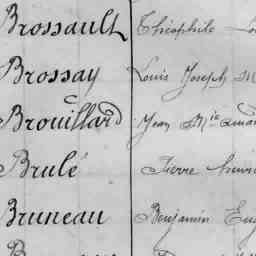 Brossault Théophile
Brossay Louis Joseph M
Brouillard Jean Mie
Brulé Pierre
Bruneau Benjamin